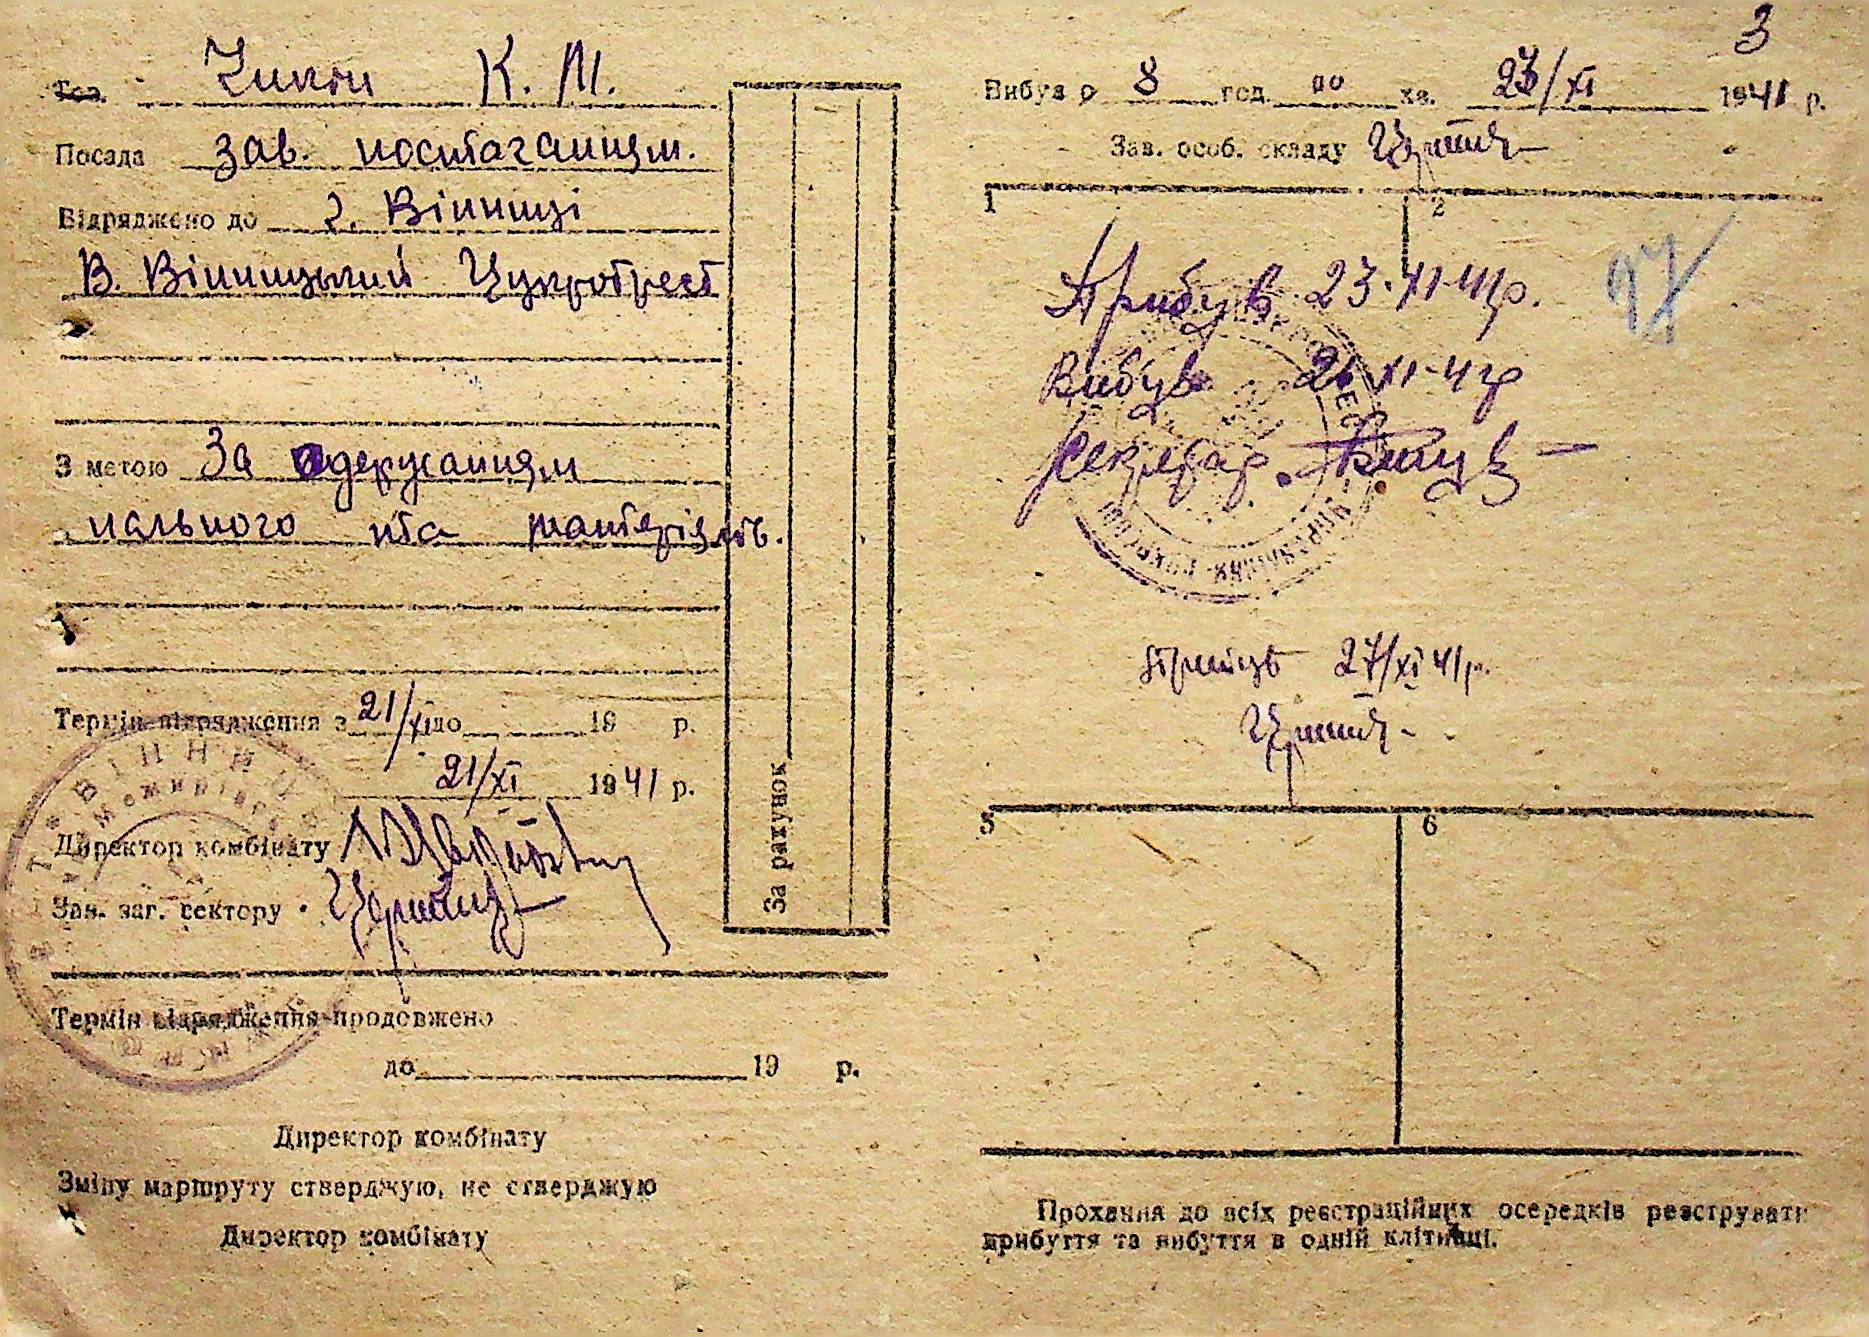 3
Тов. К. М.
Посада зав. постачанням.
Відряджено до г. Вінниці
В. Вінницький Цукротрест
З метою За одержанням
пального та матеріялів.
Термін відрядження з 21/XI до 19 р.
21/XI 1941 р.
Директор комбінату
Зав. заг. сектору
За рахунок
Термін відрядження продовжено
до 19 р.
Директор комбінату
Зміну маршруту стверджую, не стверджую
Директор комбінату
Вибув о 8 год. 00 хв. 23/XI 1941 р.
Зав. особ. складу
1 2
Прибув 23.XI-41р.
Вибув XI-41р
Секретар
27/XI 41р.
5 6
Прохання до всіх реєстраційних осередків реєструвати
прибуття та вибуття в одній клітинці.